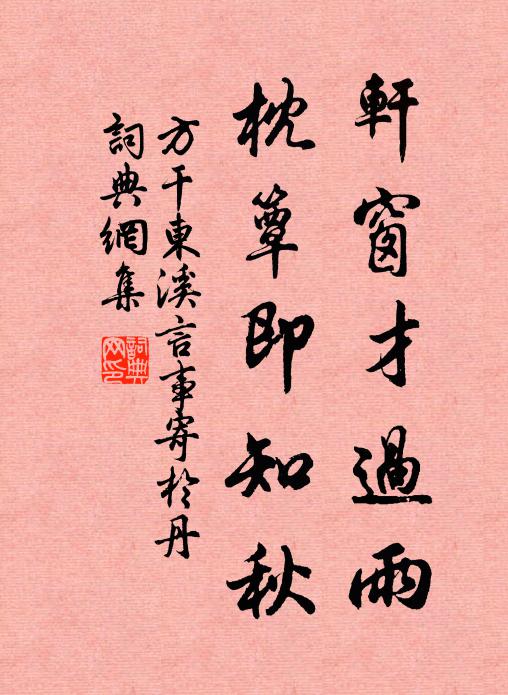 軒窗才過雨
枕簟即知秋
方干東溪言事寄於丹
詞典網集
詞典
网印